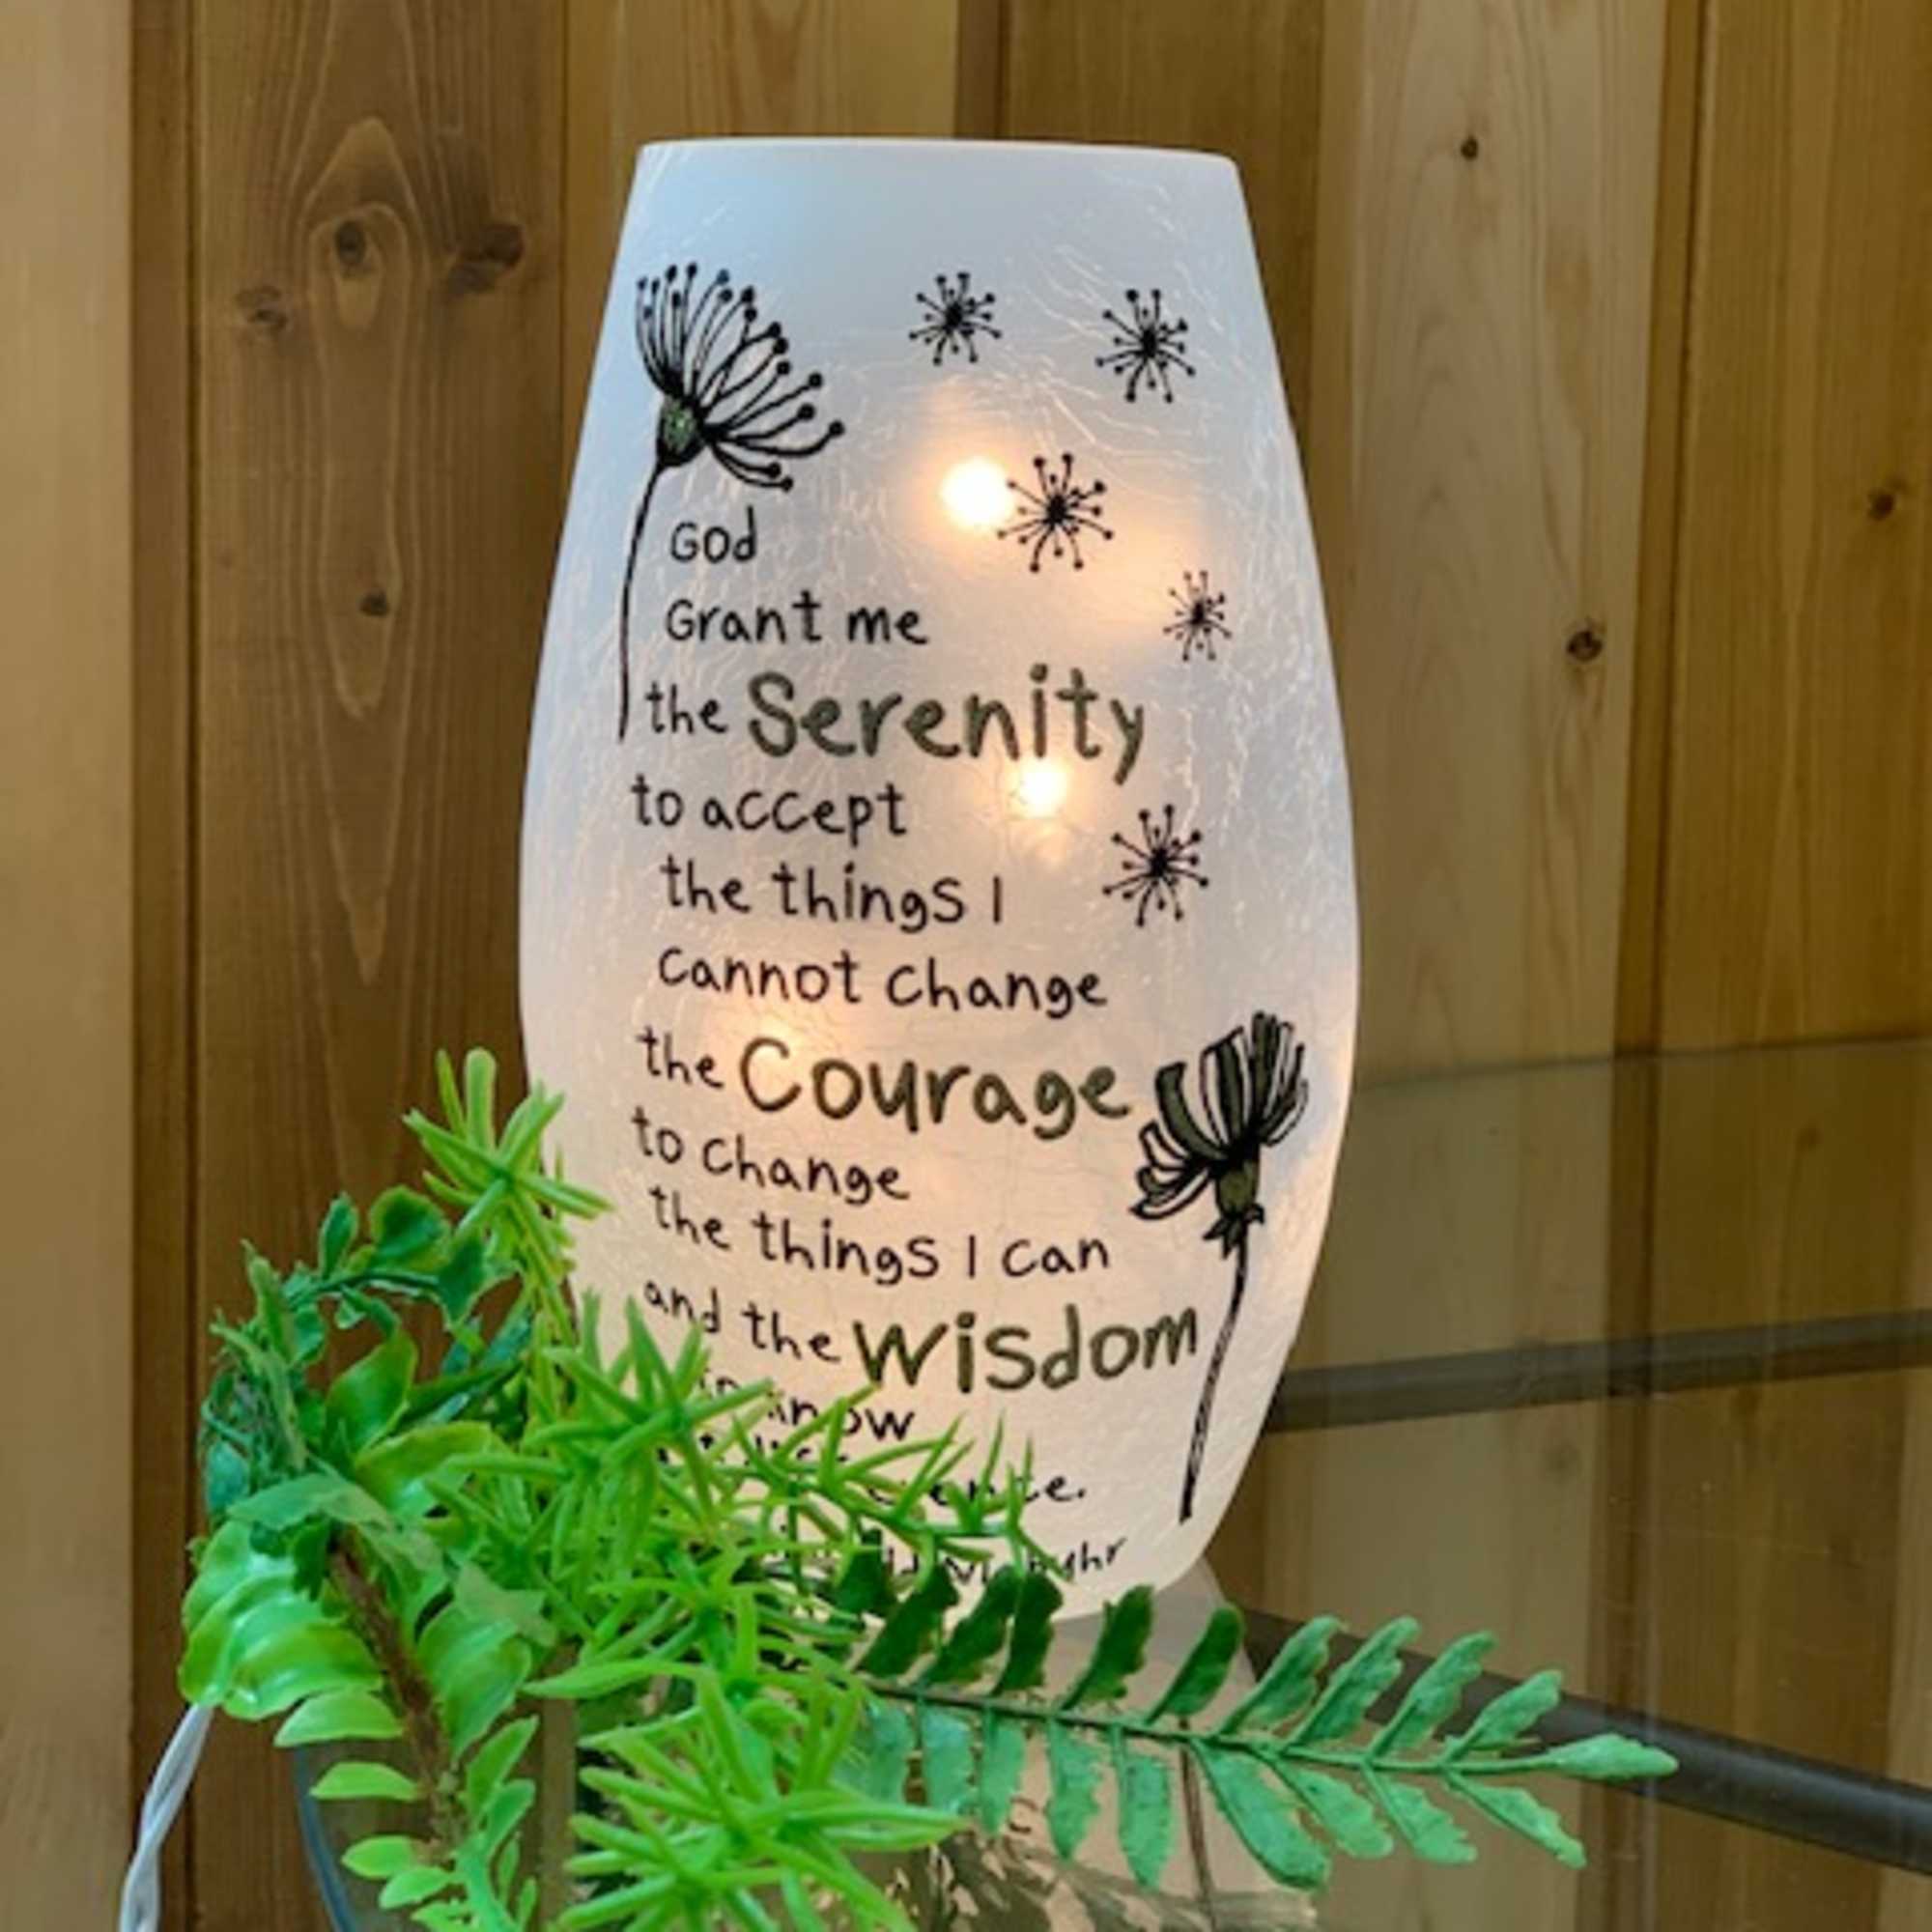 God
Grant me
the Serenity
to accept
the things I
cannot change
the Courage
to change
the things I can
and the Wisdom